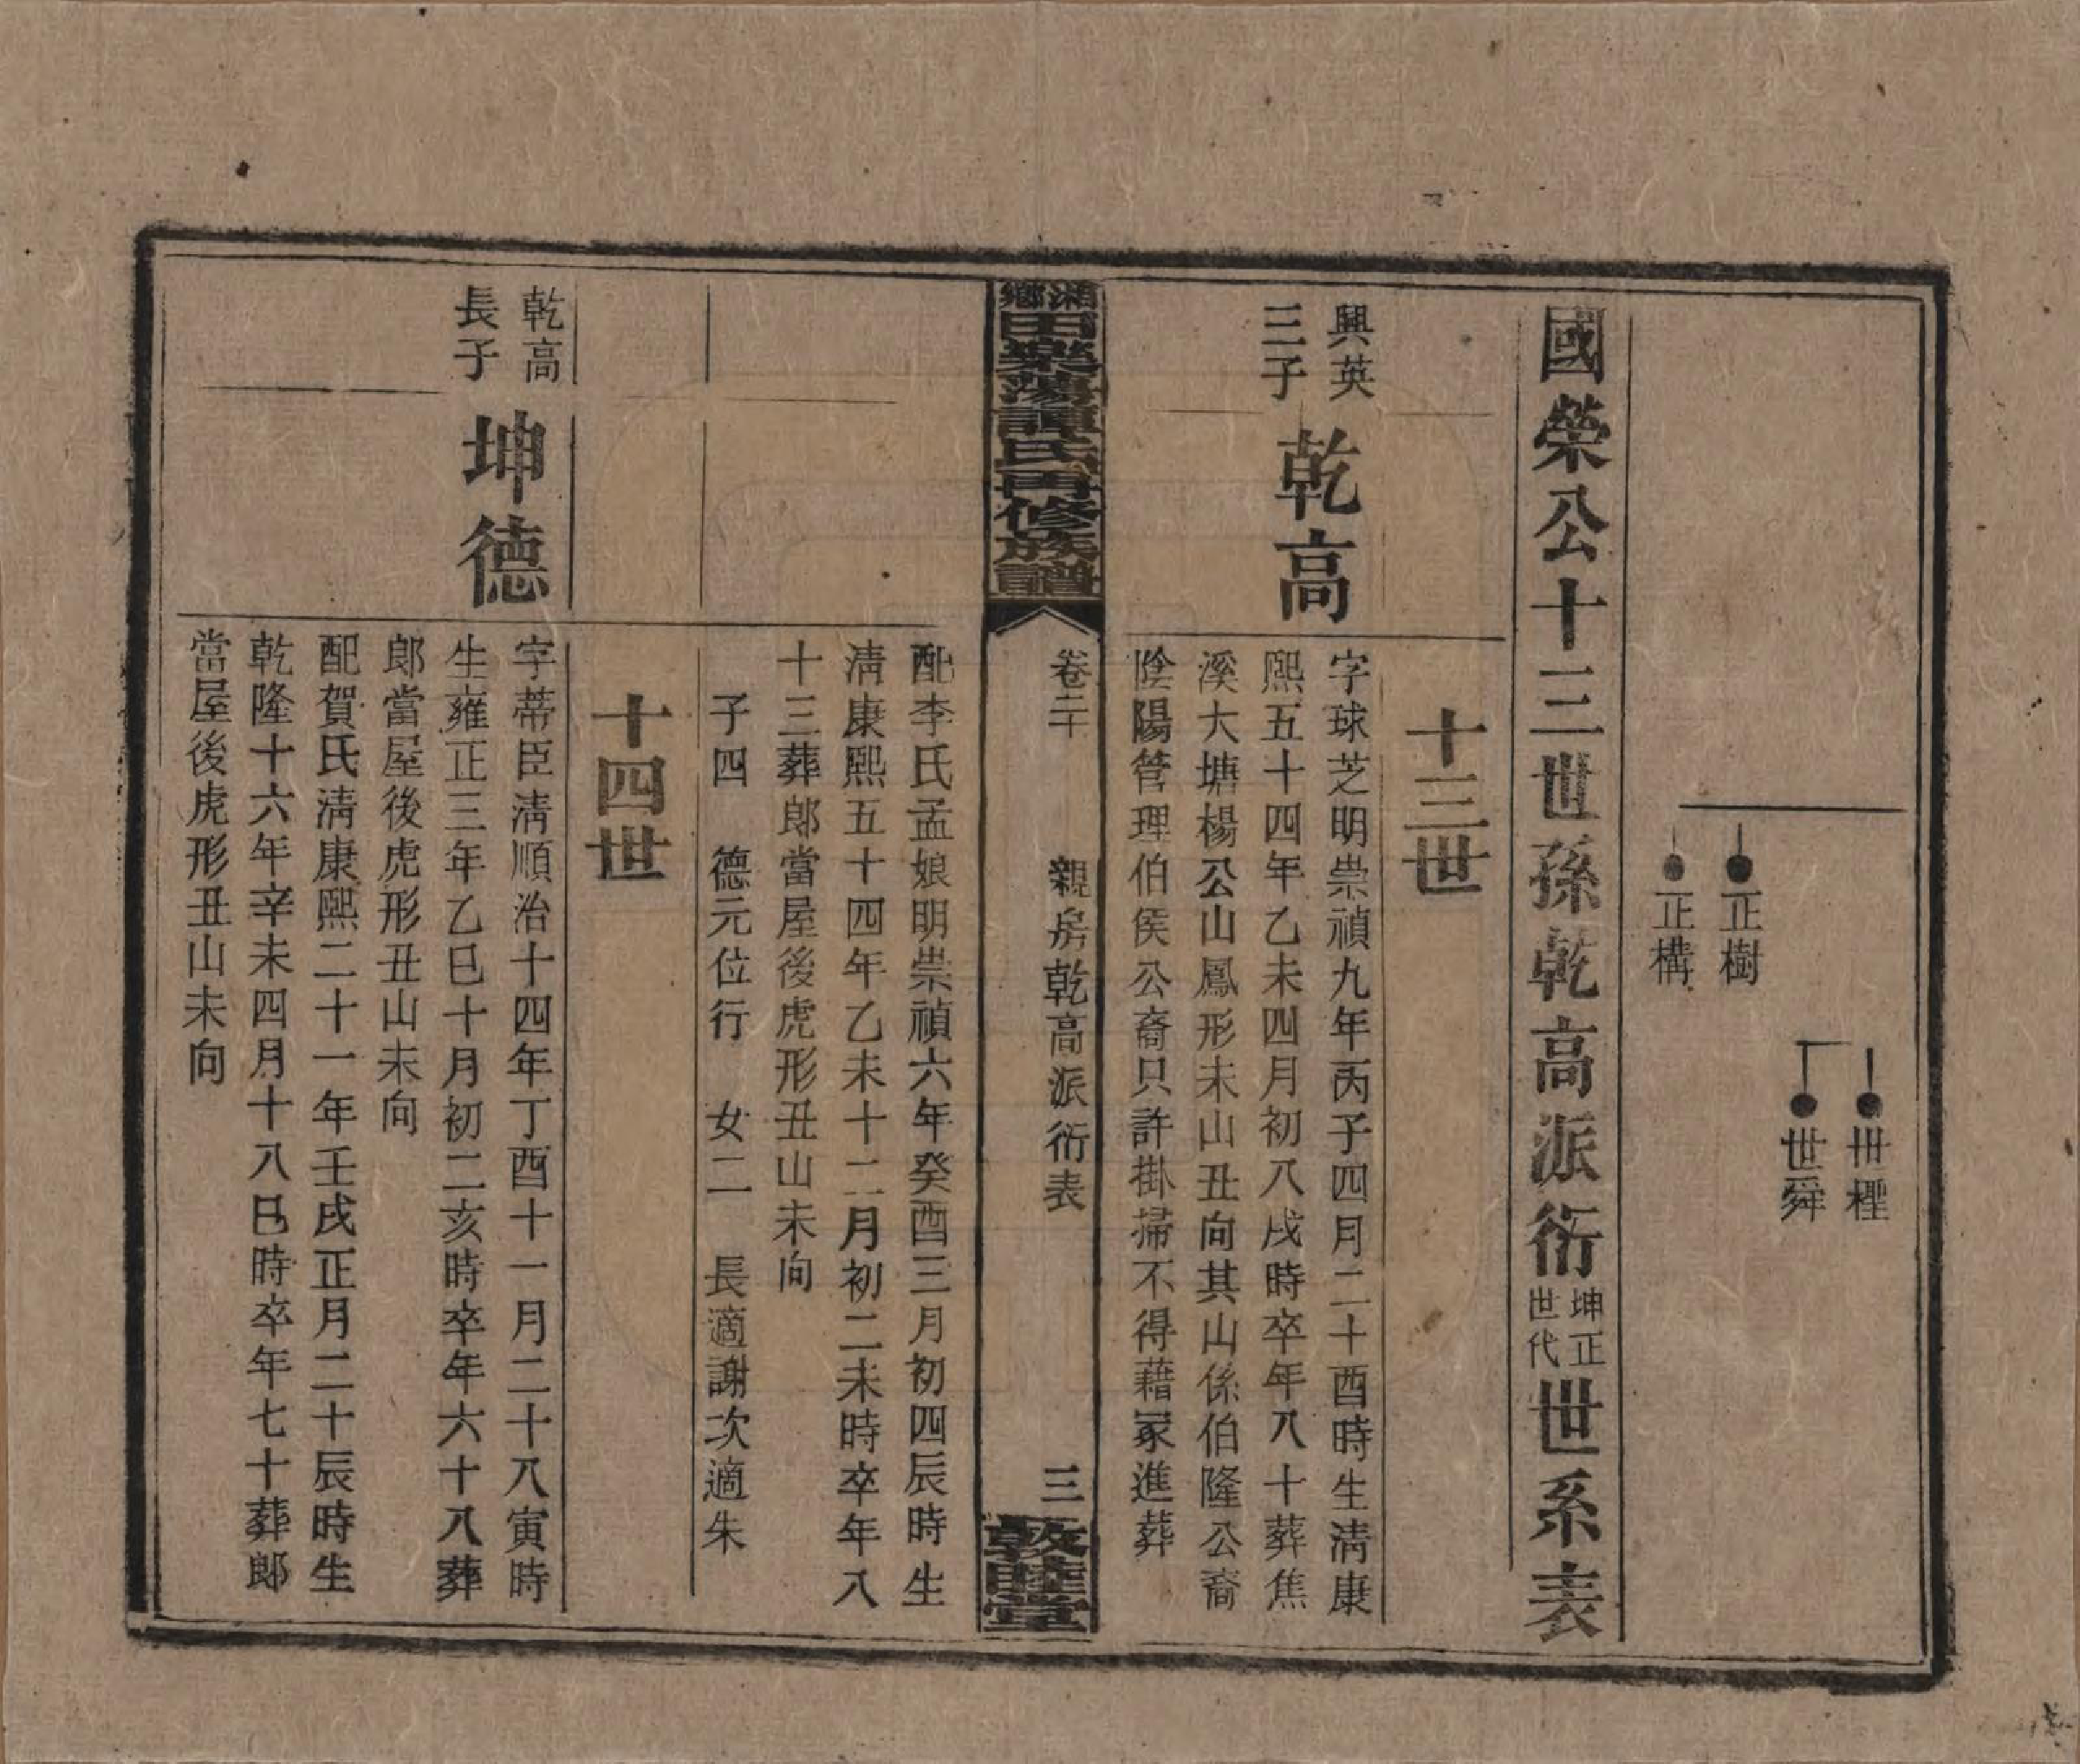 世樫
世舜
正樹
正構
國榮公十三世孫乾高派衍坤正世代世系表
十三世
興英三子
乾高
字球芝明崇禎九年丙子四月二十酉時生清康
熙五十四年乙未四月初八戌時卒年八十葬焦
溪大塘楊公山鳳形未山丑向其山係伯隆公裔
陰陽管理伯侯公裔只許掛掃不得藉冢進葬
湘鄉田樂蕩譚氏再修族譜
卷二十
親房乾高派衍表
三
敦睦堂
配李氏孟娘明崇禎六年癸酉三月初四辰時生
清康熙五十四年乙未十二月初二未時卒年八
十三葬郎當屋後虎形丑山未向
子四 德元位行 女二 長適謝次適朱
十四世
乾高長子
坤德
字蒂臣清順治十四年丁酉十一月二十八寅時
生雍正三年乙巳十月初二亥時卒年六十八葬
郎當屋後虎形丑山未向
配賀氏清康熙二十一年壬戌正月二十辰時生
乾隆十六年辛未四月十八巳時卒年七十葬郎
當屋後虎形丑山未向